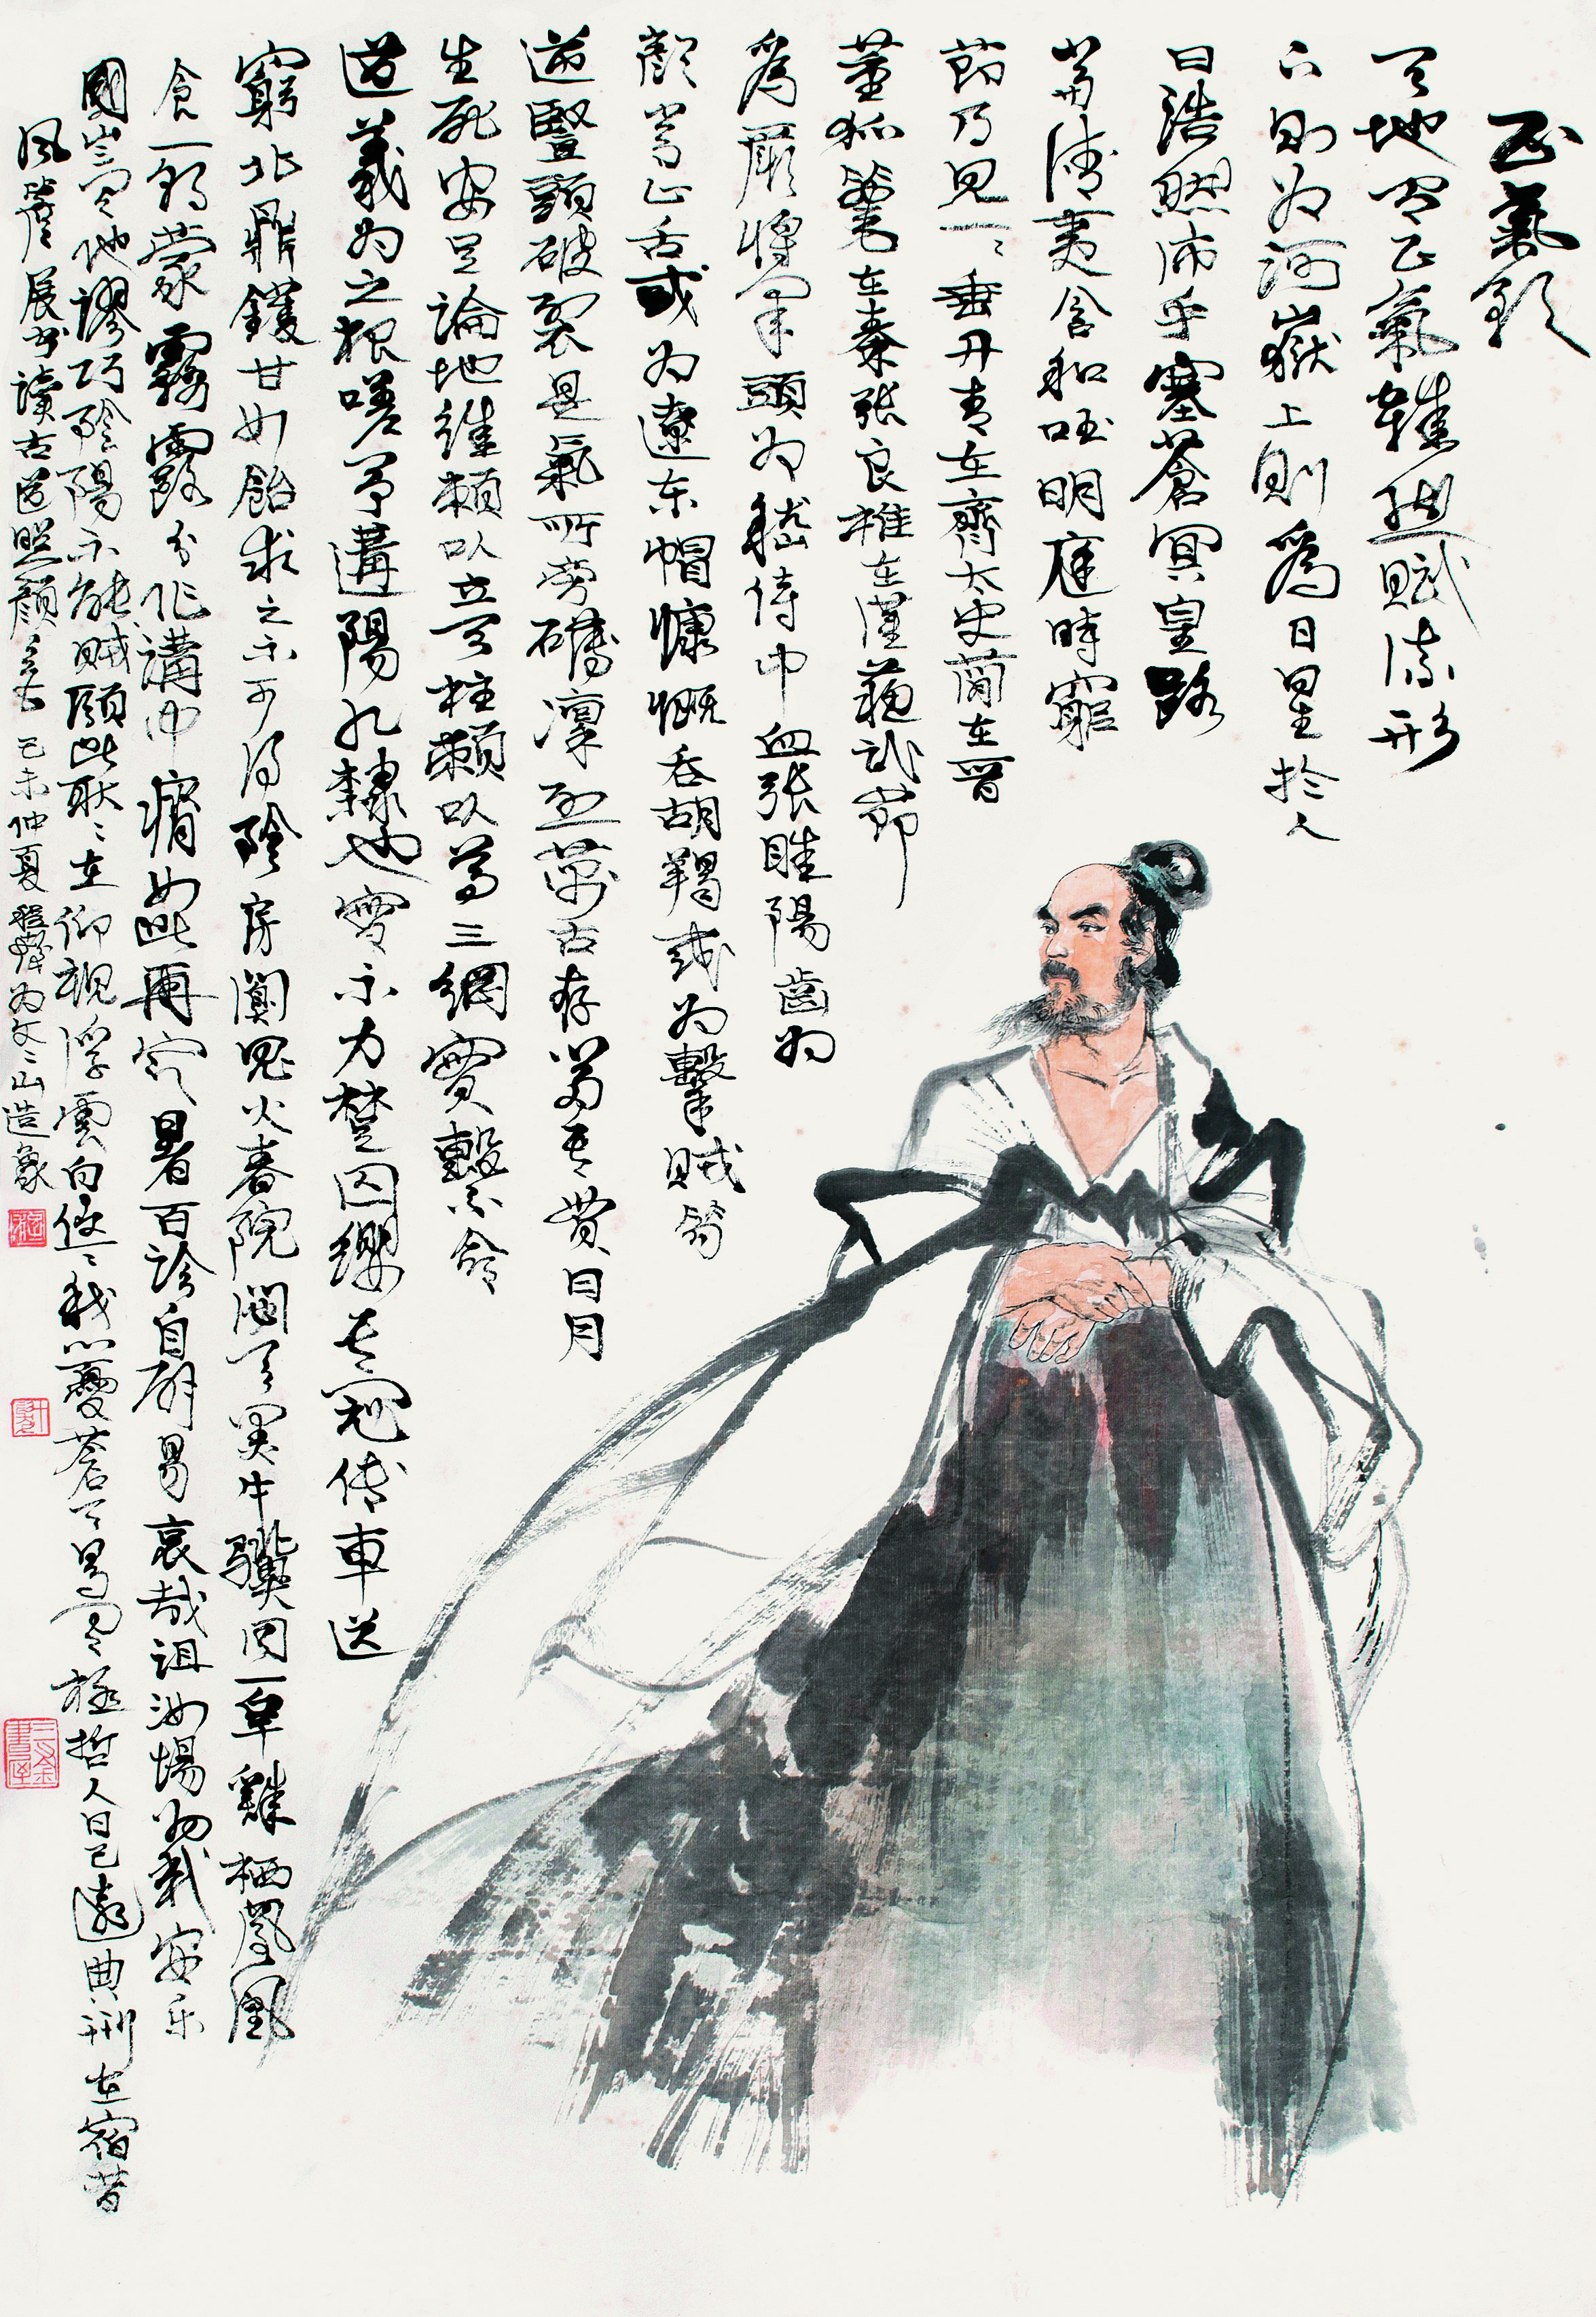 正氣歌
天地有正氣雜然賦流形
下則为河嶽上則爲日星於人
曰浩然沛乎塞蒼冥皇路
當清夷含和吐明庭時窮
節乃見一々垂丹青在齊太史簡在晉
董狐筆在秦張良椎在漢蘇武節
爲嚴將軍頭为嵇侍中血張睢陽齒为
顏常山舌或为遼东帽慷慨吞胡羯或为擊賊笏
逆豎頭破裂是氣所旁礴凜烈萬古存當其貫日月
生死安足論地維賴以立天柱賴以尊三綱實繫命
道義为之根嗟予遘陽九隸也實不力楚囚纓其冠傳車送
窮北鼎鑊甘如飴求之不可得陰房闃鬼火春院閟天黑牛驥同一皁雞栖鳳凰
食一朝蒙霧露分作溝中瘠如此再寒暑百沴自辟易哀哉沮洳場为我安乐
國豈有他謬巧陰陽不能賊顧此耿々在仰視浮雲白悠々我心憂蒼天曷有極哲人日已遠典刑在宿昔
風簷展書讀古道照顏色 己未仲夏 程十髮为文々山造象
三釜書屋